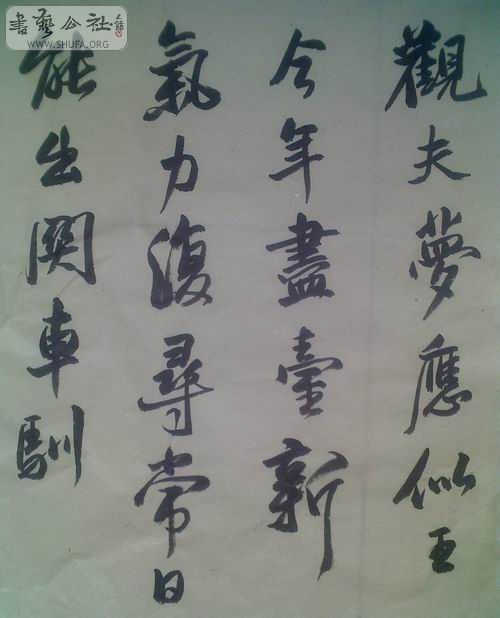 書藝公社
WWW.SHUFA.ORG
觀夫夢應似王
今年盡臺新
氣力復尋常日
能出関車馴